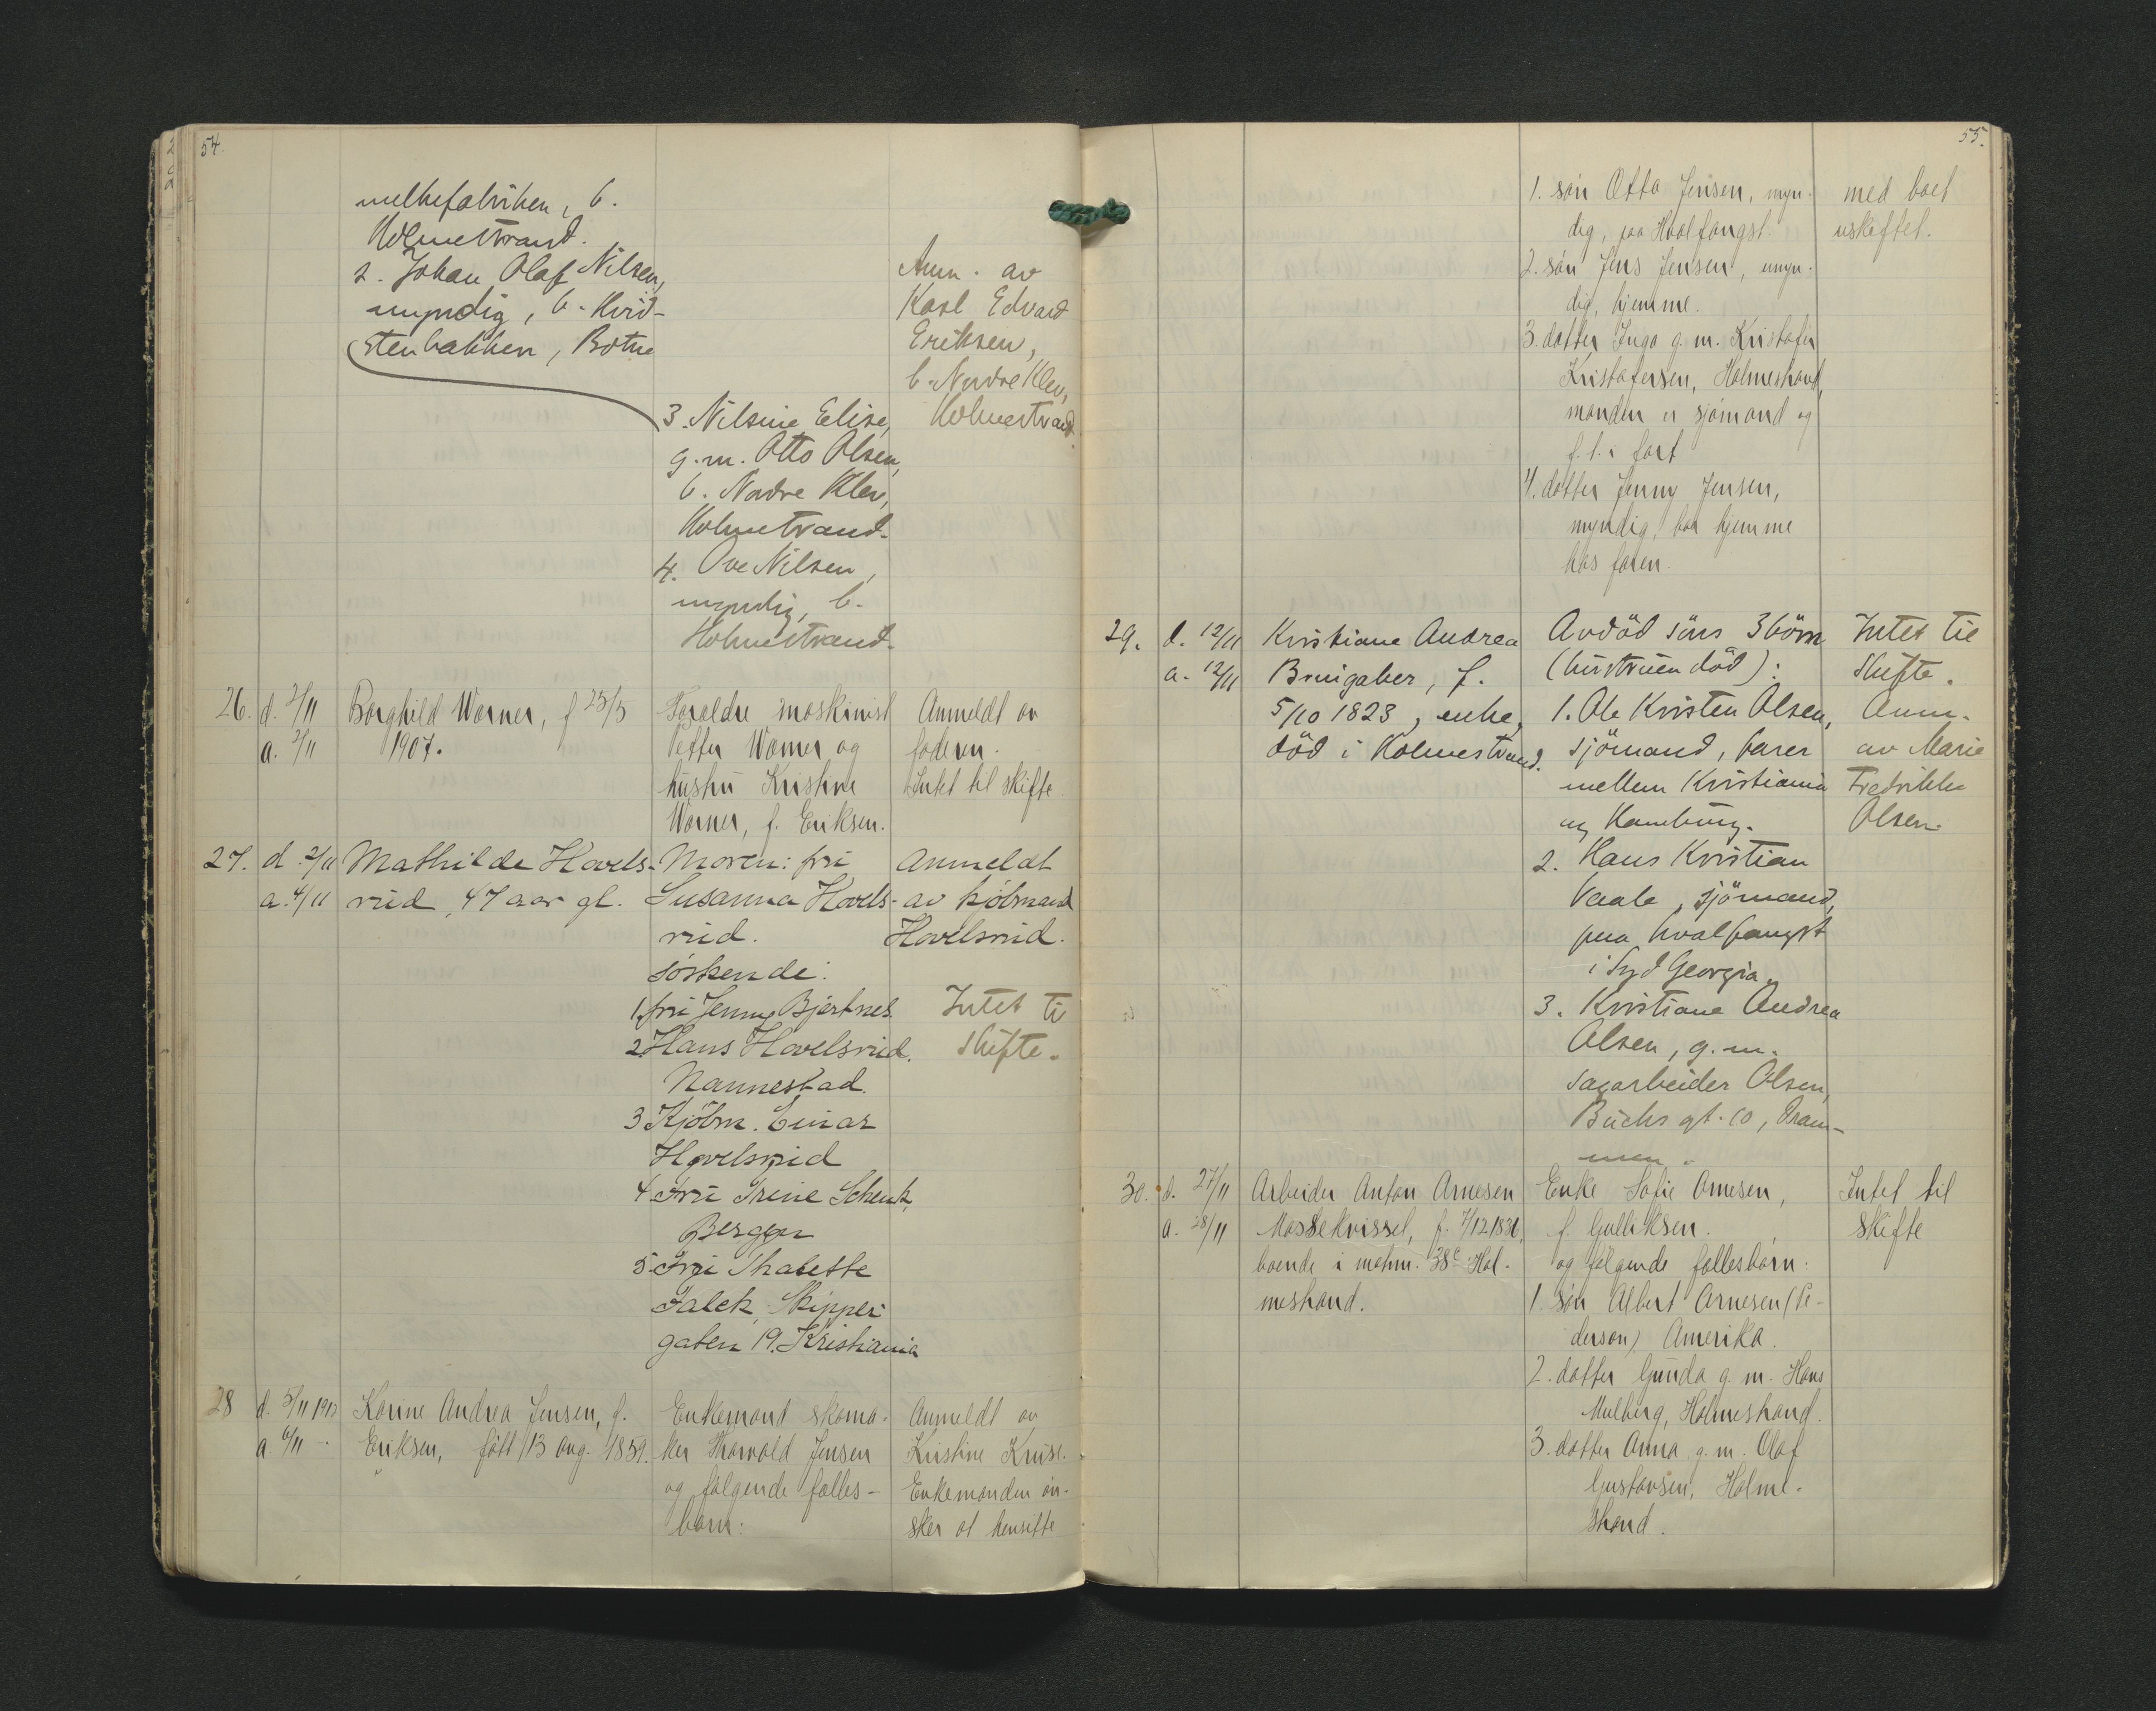 54.
melkefabriken, b.
Holmestrand.
2. Johan Olaf Nilsen,
myndig, b. Hvid-
stenbakken, Botne
Anm. av
Karl Edvard
Eriksen,
b. Nordre Klev,
Holmestrand.
3. Nilsine Elise,
g.m. Otto Olsen,
b. Nordre Klev,
Holmestrand.
4. Ove Nilsen,
myndig, b.
Holmestrand.
26. d. 2/11 Borghild Warner, f 25/5
a. 2/11 1907.
Foraldre maskinist
Petter Warner og
hustru Kristine
Warner, f. Eriksen.
Anmeldt av
faderen.
Intet til skifte.
27. d. 2/11 Mathilde Hovels-
a. 4/11 rud, 47 aar gl.
Moren: fru
Susanna Hovels-
rud.
söskende:
1. fru Jenny Bjertnes.
2. Hans Hovelsrud.
Nannestad.
3 Kjöbm. Einar
Hovelsrud
4 Fru Trine Schenk,
Bergen
5. Fru Thalette
Falck, Skipper
gaten 19. Kristiania
Anmeldt
av kjöbmand
Hovelsrud.
Intet til
Skifte.
28 d. 5/11 1913 Karine Andrea Jensen, f.
a. 6/11 - Eriksen, født 13 aug. 1859.
Enkemand skoma-
ker Thorvald Jensen
og følgende fælles-
barn:
Anmeldt av
Kristine Kruse.
Enkemanden øn-
sker at hensitte
55.
1. søn Otto Jensen, myn-
dig, paa Hvalfangst.
2. søn Jens Jensen, myn-
dig, hjemme.
3. datter Inga g. m. Kristofer
Kristofersen, Holmestrand,
manden er sjømand og
f. t. i fart
4. datter Jenny Jensen,
myndig, bor hjemme
hos faren.
med boet
uskiftet.
29. d. 12/11 Kristiane Andrea
a. 12/11 Bruigaber, f.
5/10 1823, enke,
död i Holmestrand.
Avdöd söns 3 börn
(hustruen död):
1. Ole Kristen Olsen,
sjömand, farer
mellem Kristiania
og Hamburg.
2. Hans Kristian
Vaale, sjömand,
paa hvalfangst
i Syd Georgia.
3. Kristiane Andrea
Olsen, g.m.
sagarbeider Olsen,
Buchs gt. 10, Dram-
men.
Intet til
Skifte.
Anm.
av Marie
Fredrikke
Olsen.
30. d. 27/11 Arbeider Anton Arnesen
a. 28/11 Massekvissel, f. 7/12 1836,
boende i matrn. 38c Hol-
mestrand.
Enke Sofie Arnesen,
f. Gulliksen.
og følgende fællesbørn:
1. søn Albert Arnesen (Pe-
derson) Amerika.
2. datter Gunda g. m. Hans
Mulberg, Holmestrand.
3. datter Anna g. m. Olaf
Gustavsen, Holme-
strand.
Intet til
skifte